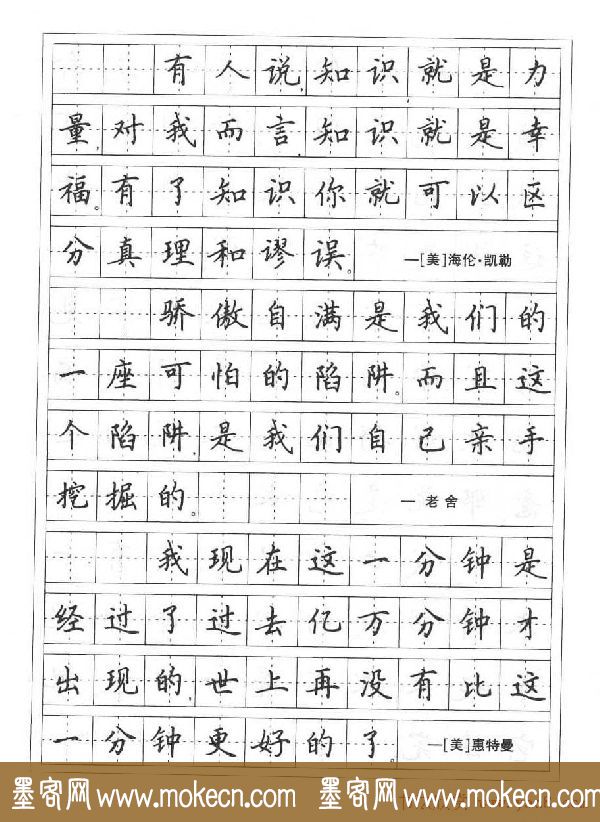 有人说,知识就是力
量,对我而言,知识就是幸
福。有了知识你就可以区
分真理和谬误。 —[美]海伦·凯勒
骄傲自满是我们的
一座可怕的陷阱。而且这
个陷阱,是我们自己亲手
挖掘的。 — 老舍
我现在这一分钟是
经过了过去亿万分钟才
出现的,世上再没有比这
一分钟更好的了。 —[美]惠特曼
墨客网 www.mokecn.com 墨客网 www.mokecn.com